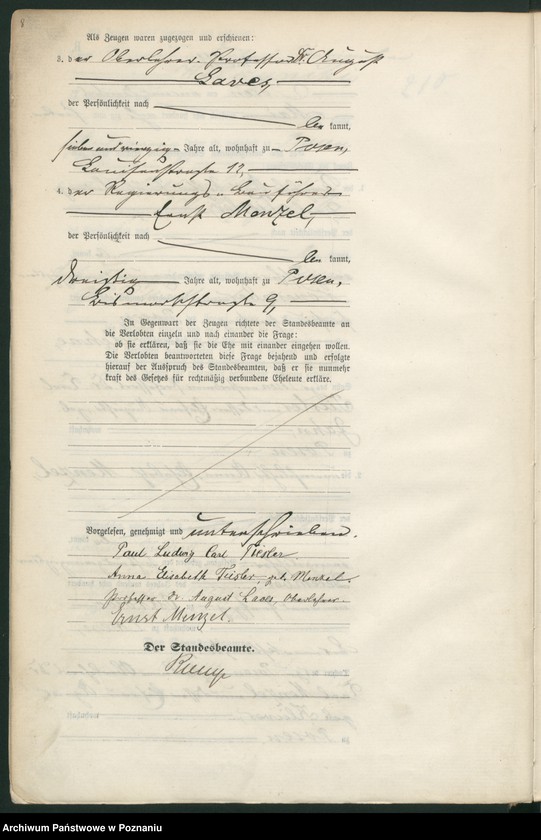 8
Als Zeugen waren zugezogen und erschienen:
3. der Oberlehrer Professor Dr. August
Laves,
der Persönlichkeit nach
be kannt,
sieben und vierzig Jahre alt, wohnhaft zu Posen,
Louisenstraße 12,
4. der Regierungs-Bauführer
Ernst Menzel,
der Persönlichkeit nach
be kannt,
dreißig Jahre alt, wohnhaft zu Posen,
Bismarckstraße 9,
In Gegenwart der Zeugen richtete der Standesbeamte an
die Verlobten einzeln und nach einander die Frage:
ob sie erklären, daß sie die Ehe mit einander eingehen wollen.
Die Verlobten beantworteten diese Frage bejahend und erfolgte
hierauf der Ausspruch des Standesbeamten, daß er sie nunmehr
kraft des Gesetzes für rechtmäßig verbundene Eheleute erkläre.
Vorgelesen, genehmigt und unterschrieben.
Paul Ludwig Carl Tiesler
Anna Elisabeth Tiesler, geb. Menzel.
Professor Dr. August Laves, Oberlehrer.
Ernst Menzel.
Der Standesbeamte.
Archiwum Państwowe w Poznaniu